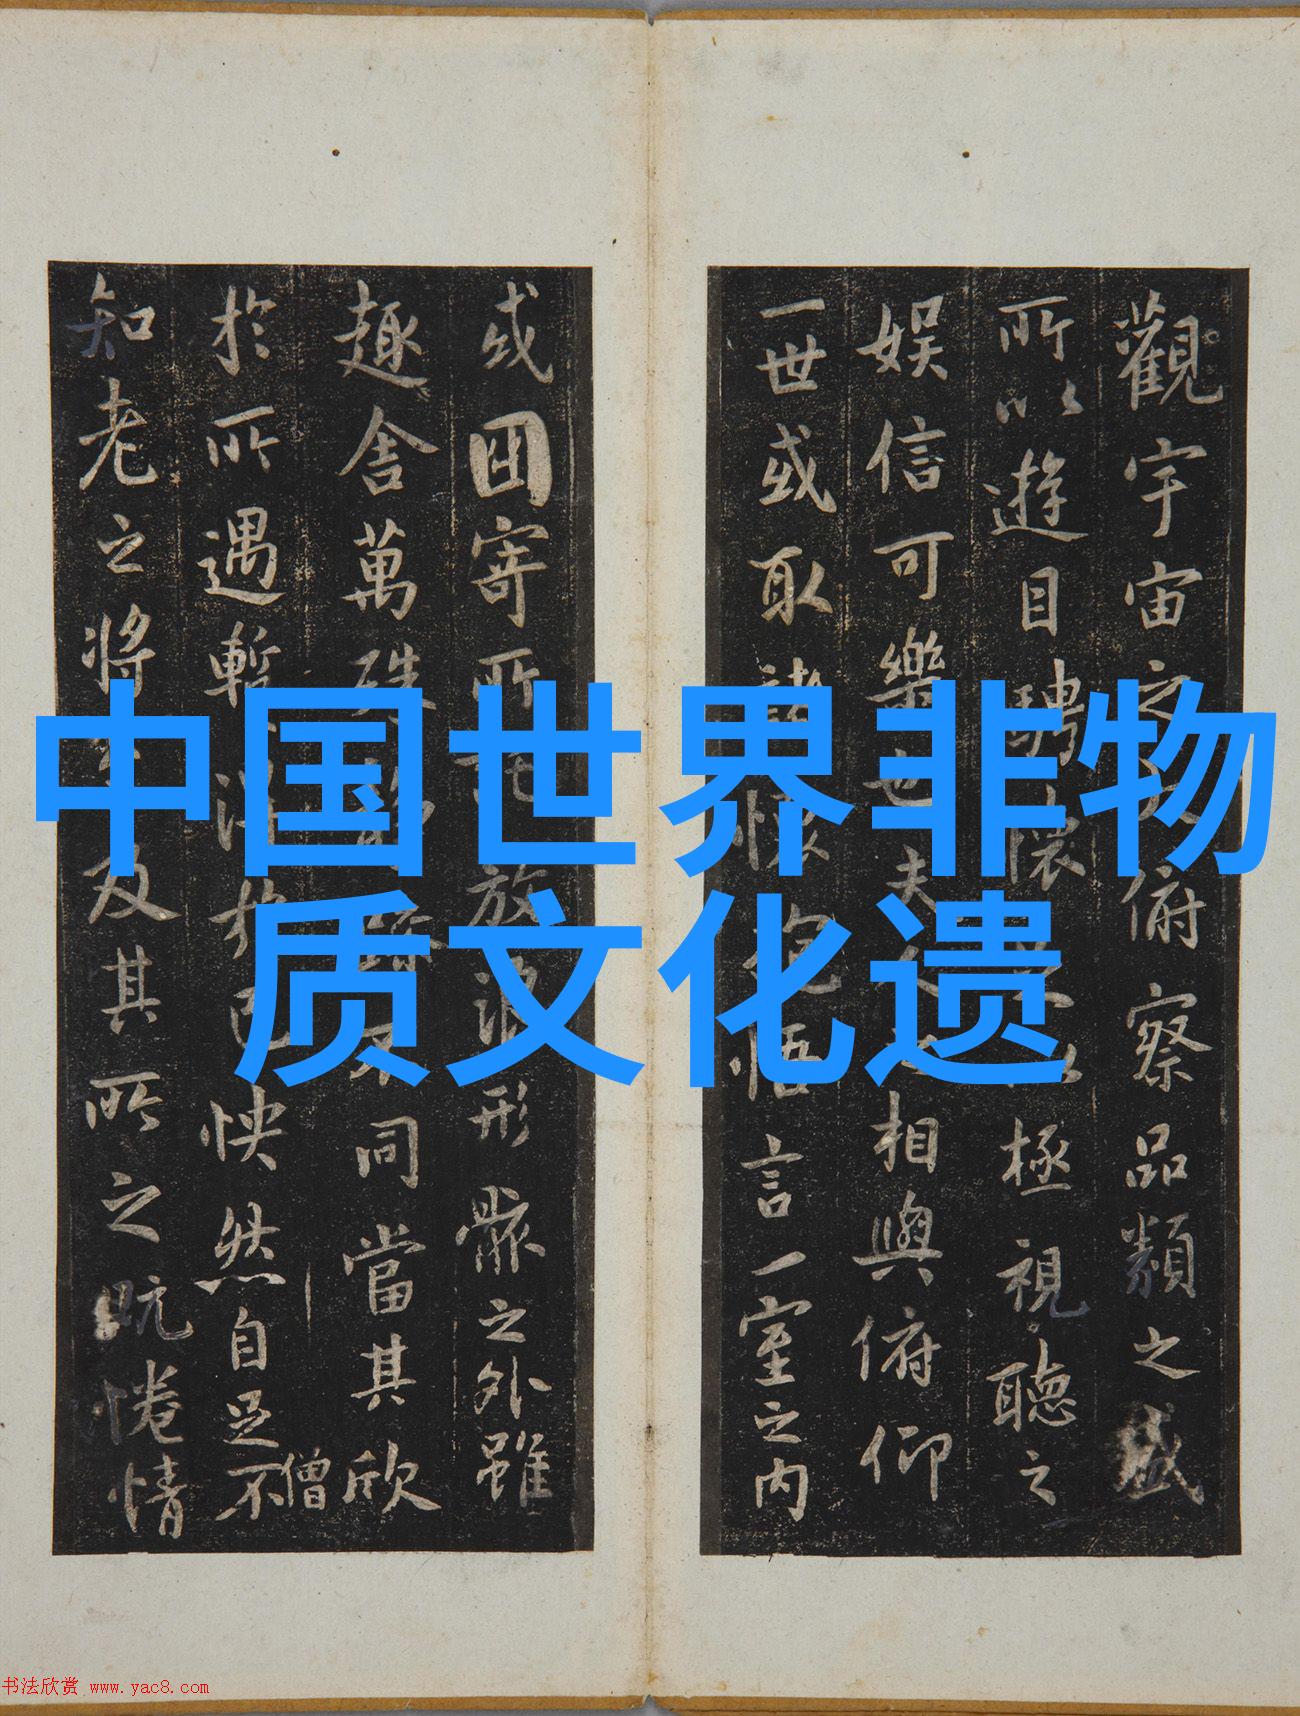 中国世界非物
质文化遗
觀宇宙之俯察品類之盛
所以遊目騁懷以極視聽之
娱信可樂也夫相與俯仰
一世或取諸懷抱悟言一室之内
或因寄所託放浪形骸之外雖
趣舍萬殊不同當其欣
於所遇暫得於己怏然自足不
僧
知老之將至及其所之既惓情
书法欣赏 www.yac8.com